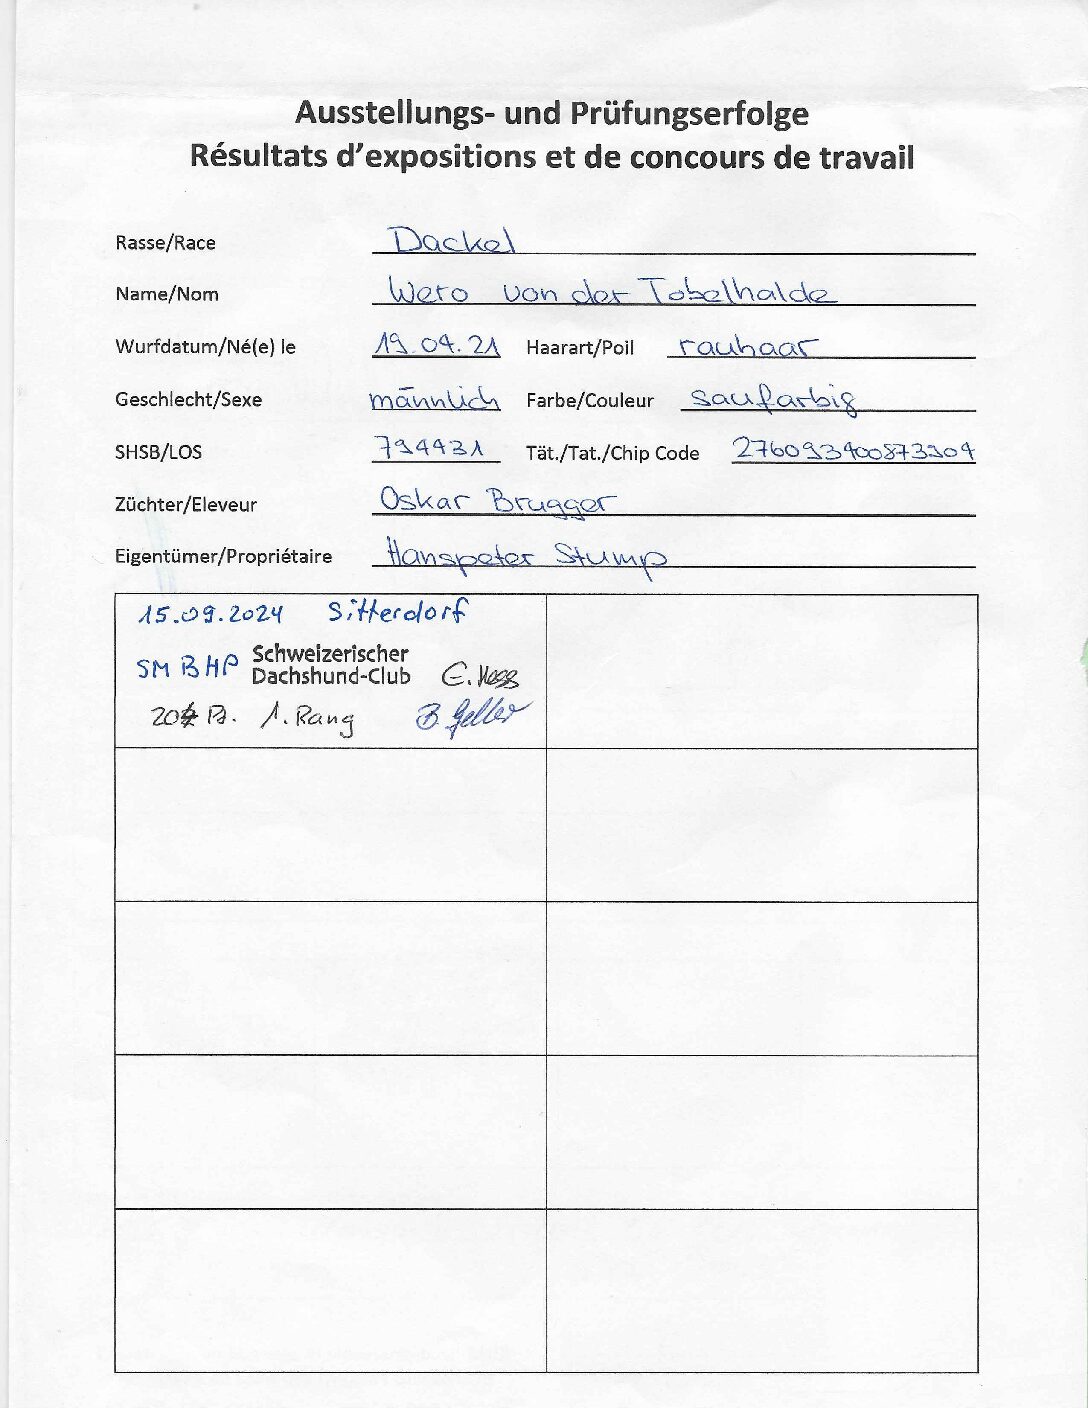 Ausstellungs- und Prüfungserfolge
Résultats d'expositions et de concours de travail
Rasse/Race Dackel
Name/Nom Wero von der Tobelhalde
Wurfdatum/Né(e) le 19.04.21 Haarart/Poil rauhaar
Geschlecht/Sexe männlich Farbe/Couleur saufarbig
SHSB/LOS 794431 Tät./Tat./Chip Code
Züchter/Eleveur Oskar Brugger
Eigentümer/Propriétaire Hanspeter Stump
15.09.2024 Sitterdorf
SM BHP Schweizerischer
Dachshund-Club
1. Rang